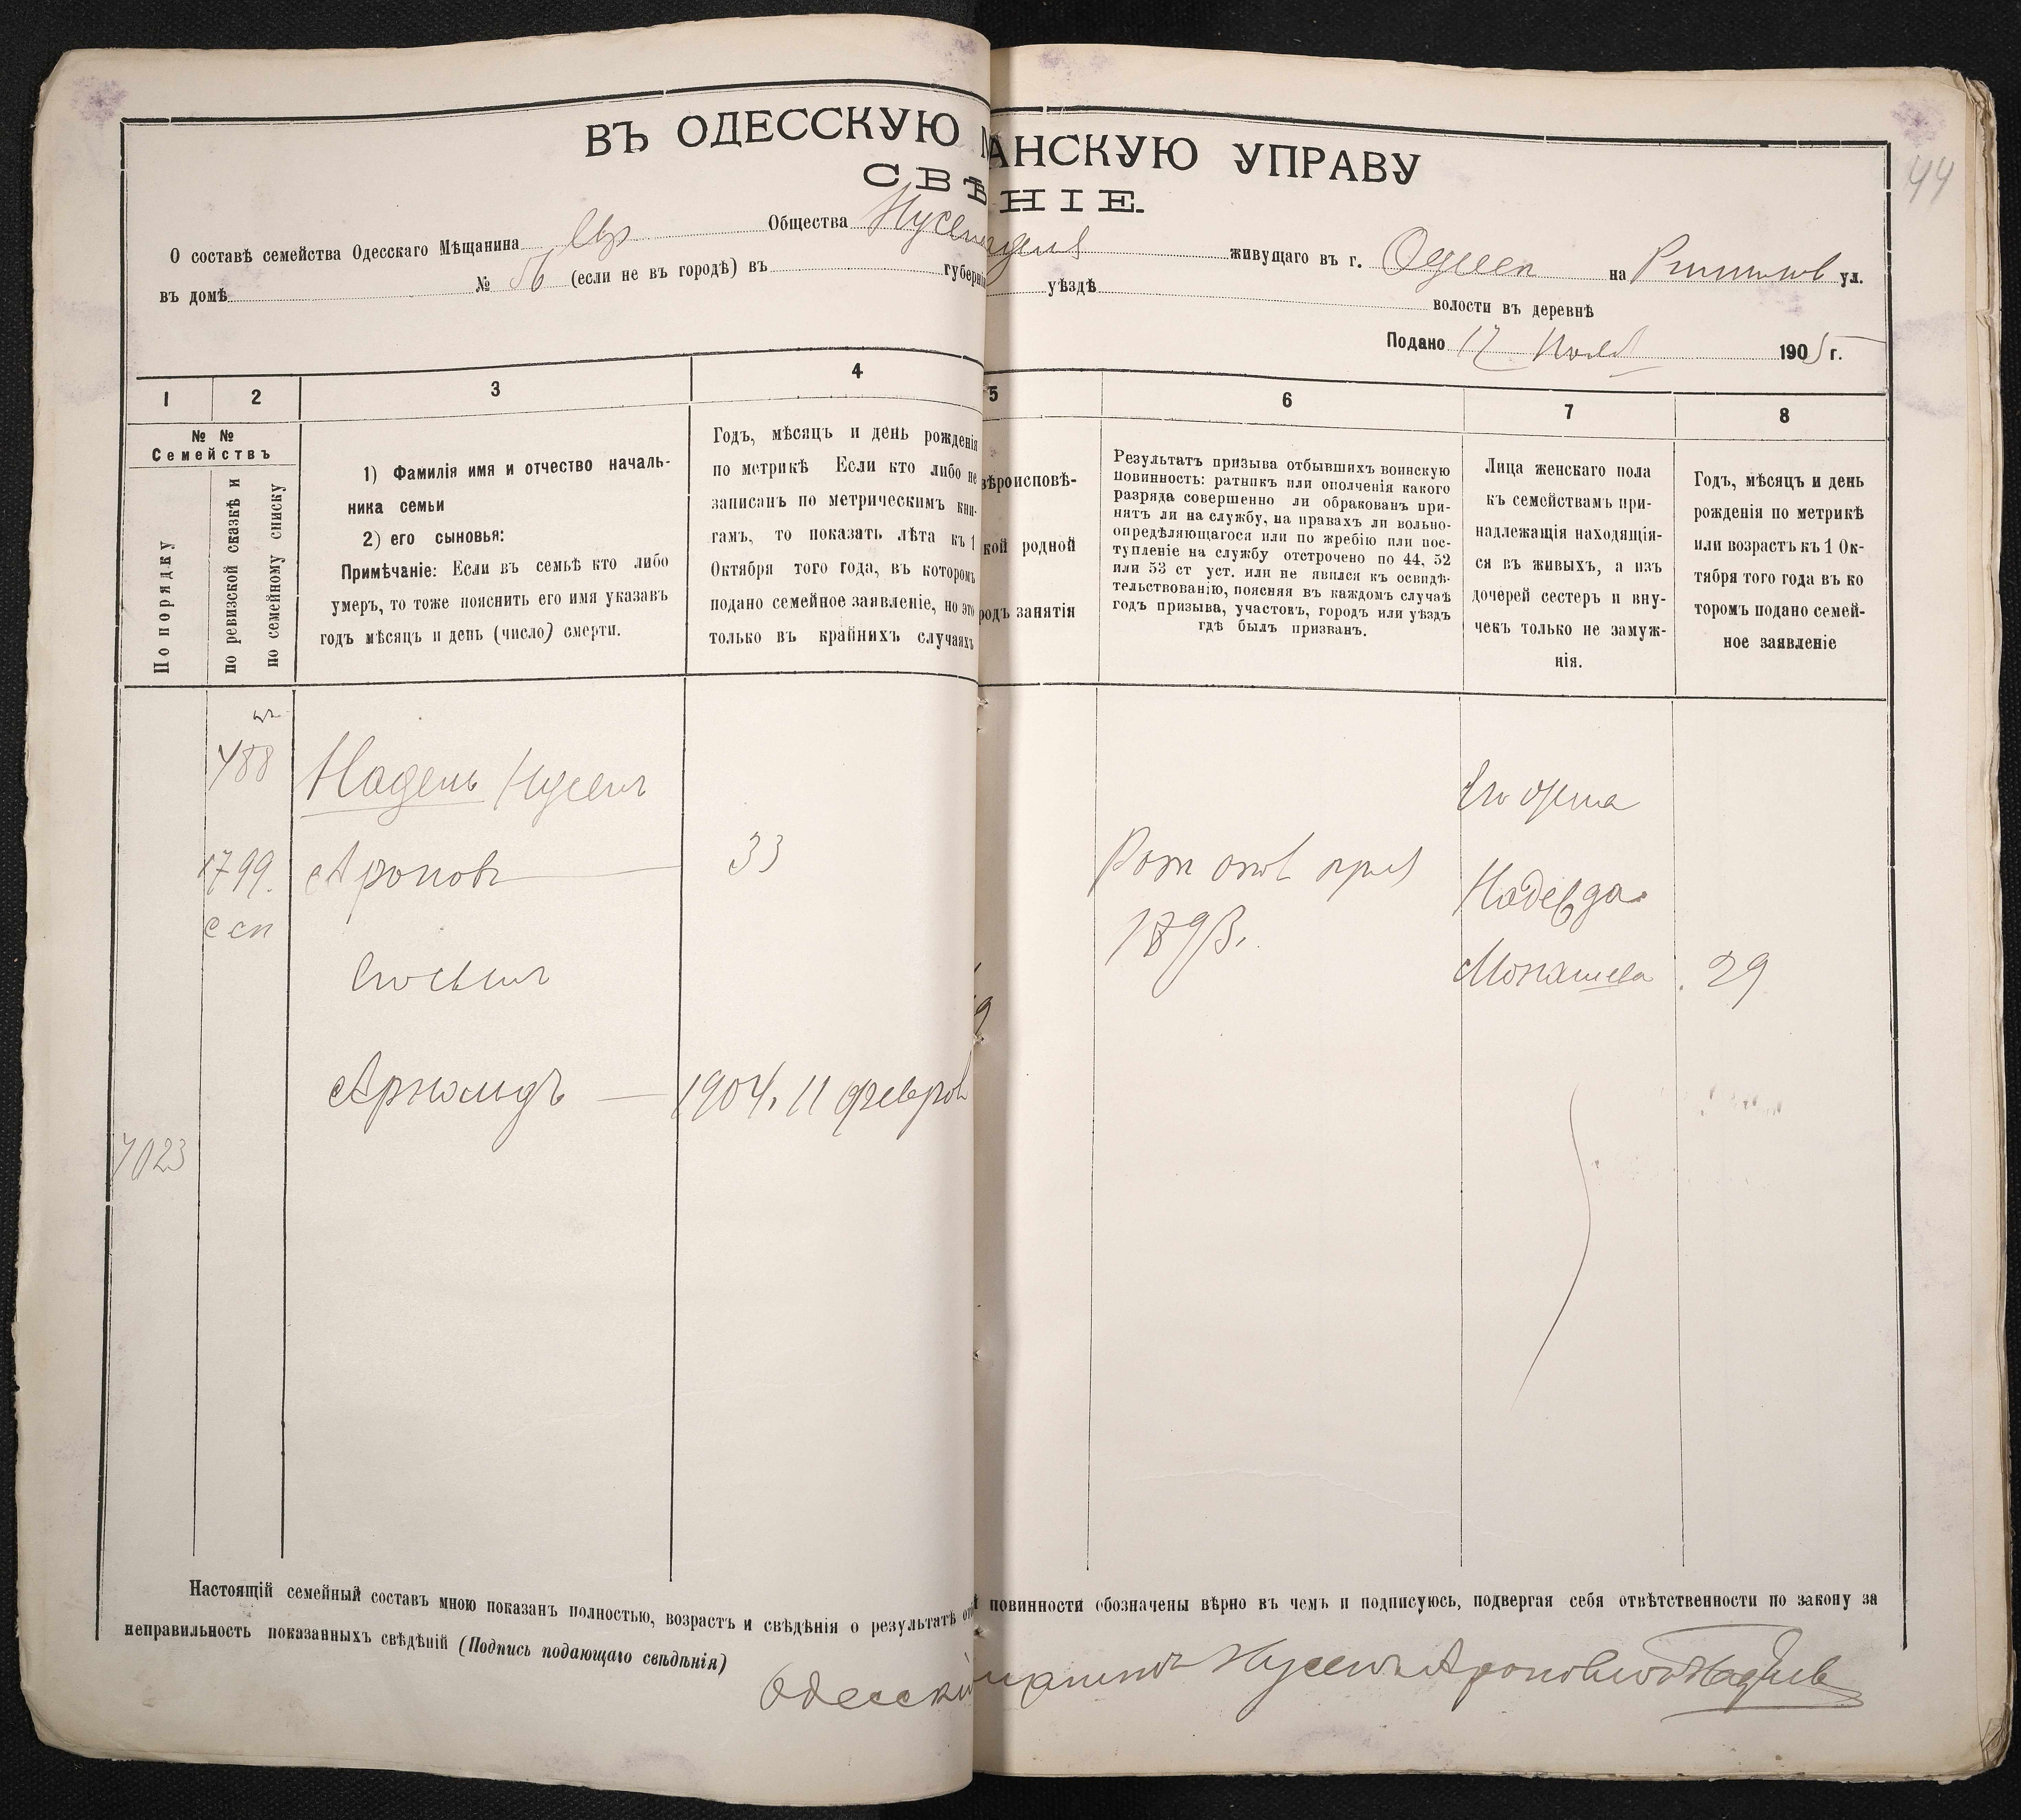 ВЪ ОДЕССКУЮ М АНСКУЮ УПРАВУ
44
СВѢ НІЕ.
О составѣ семейства Одесскаго Мѣщанина Евр Общества живущаго въ г. Одессѣ на ул.
въ домѣ № 56 (если не въ городѣ) въ губерні уѣздѣ волости въ деревнѣ
Подано 17 1905 г.
1 2 3 4 5 6 7 8
№ №
Семействъ
По порядку
по ревизской сказкѣ и
по семейному списку
1) Фамилія имя и отчество началь-
ника семьи
2) его сыновья:
Примѣчаніе: Если въ семьѣ кто либо
умеръ, то тоже пояснить его имя указавъ
годъ мѣсяцъ и день (число) смерти.
Годъ, мѣсяцъ и день рожденія
по метрикѣ Если кто либо не
записанъ по метрическимъ кни-
гамъ, то показать лѣта къ 1
Октября того года, въ которомъ
подано семейное заявленіе, но это
только въ крайнихъ случаяхъ
вѣроисповѣ-
кой родной
родъ занятія
Результатъ призыва отбывшихъ воинскую
повинность: ратникъ или ополченія какого
разряда совершенно ли обракованъ при-
нятъ ли на службу, на правахъ ли вольно-
опредѣляющагося или по жребію или пос-
тупленіе на службу отстрочено по 44, 52
или 53 ст уст. или не явился къ освидѣ-
тельствованію, поясняя въ каждомъ случаѣ
годъ призыва, участокъ, городъ или уѣздъ
гдѣ былъ призванъ.
Лица женскаго пола
къ семействамъ при-
надлежащія находящія-
ся въ живыхъ, а изъ
дочерей сестеръ и вну-
чекъ только не замуж-
нія.
Годъ, мѣсяцъ и день
рожденія по метрикѣ
или возрастъ къ 1 Ок-
тября того года въ ко
торомъ подано семей-
ное заявленіе
488 Надель Нусенъ
Его жена
1799. Ароновъ 33
Рат опол приз Надежда
с сп
1893.
Его сынъ
Монашева 29
Арнольдъ — 1904. 11 феврал
7023
Настоящій семейный составъ мною показанъ полностью, возрастъ и свѣдѣнія о результатѣ от й повинности обозначены вѣрно въ чемъ и подписуюсь, подвергая себя отвѣтственности по закону за
неправильность показанныхъ свѣдѣній (Подпись подающаго свѣдѣнія)
Одесскій Нусенъ Ароновичъ Надель